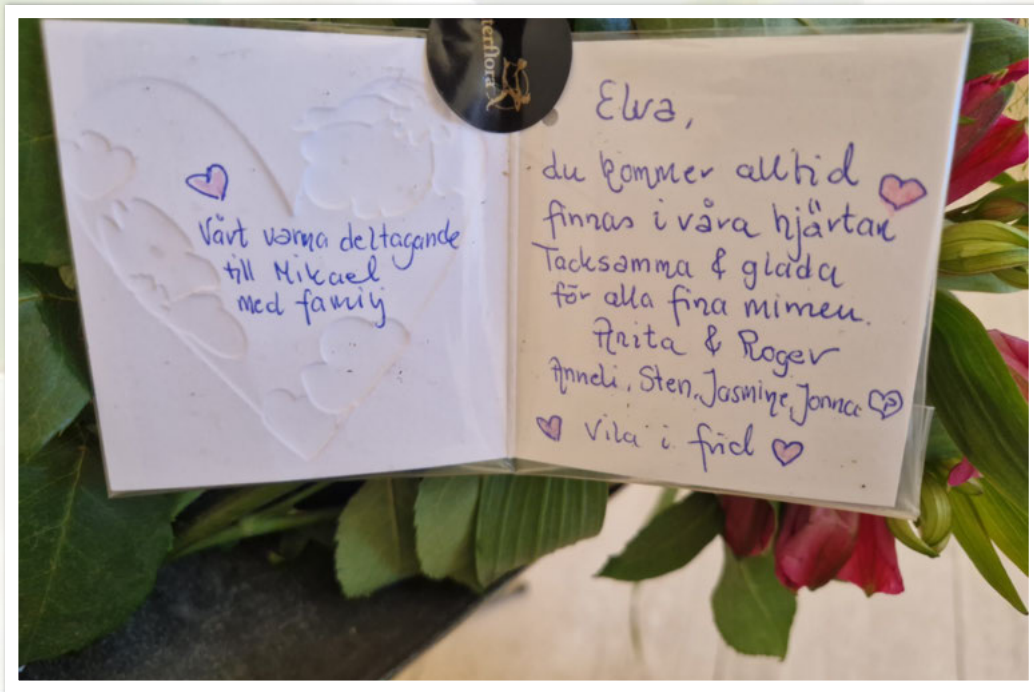 terflora
Vårt varma deltagande
till Mikael
med familj
Elva,
du kommer alltid
finnas i våra hjärtan
Tacksamma & glada
för alla fina minnen.
Anita & Roger
Anneli, Sten, Jasmine, Jonna
Vila i frid